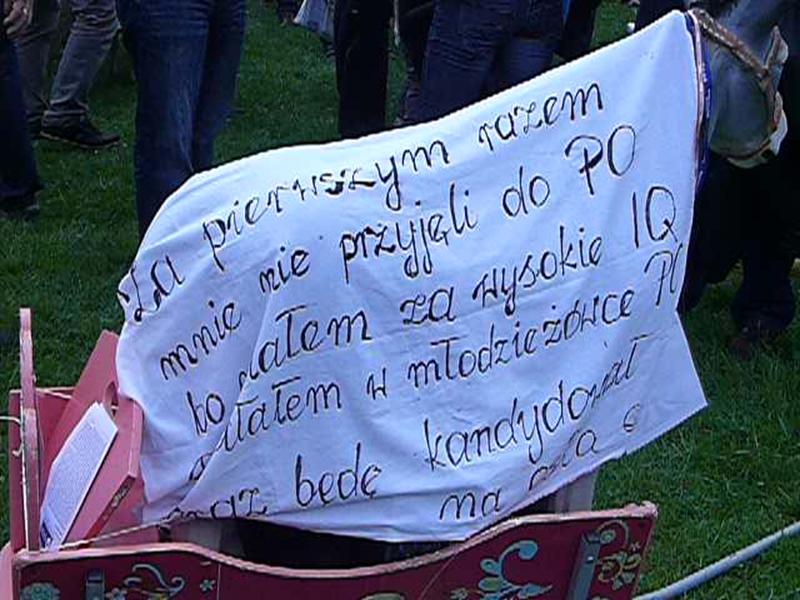 Za pierwszym razem
mnie nie przyjęli do PO
bo miałem za wysokie IQ
w młodzieżówce
będę kandydował
na